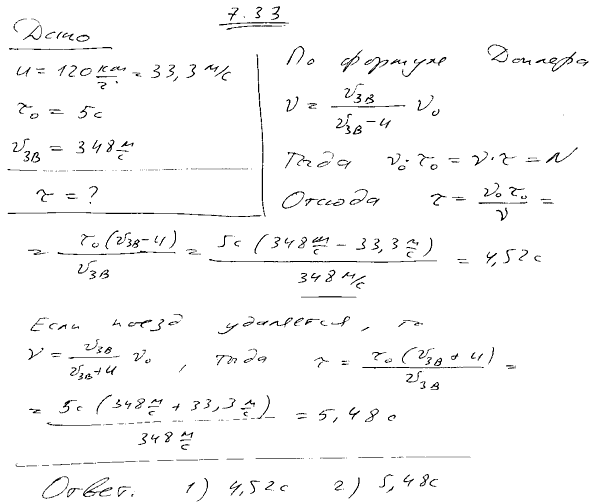 7.33
Дано
u = 120 км/г. = 33,3 м/с
τ₀ = 5с
v_зв = 348 м/с
τ = ?
По формуле Доплера
ν = v_зв / (v_зв - u) ν₀
Тогда ν₀·τ₀ = ν·τ = N
Отсюда τ = ν₀τ₀ / ν =
= τ₀(v_зв - u) / v_зв = 5с (348 м/с - 33,3 м/с) / 348 м/с = 4,52с
Если поезд удаляется, то
ν = v_зв / (v_зв + u) ν₀, тогда τ = τ₀(v_зв + u) / v_зв =
= 5с (348 м/с + 33,3 м/с) / 348 м/с = 5,48с
Ответ. 1) 4,52с 2) 5,48с